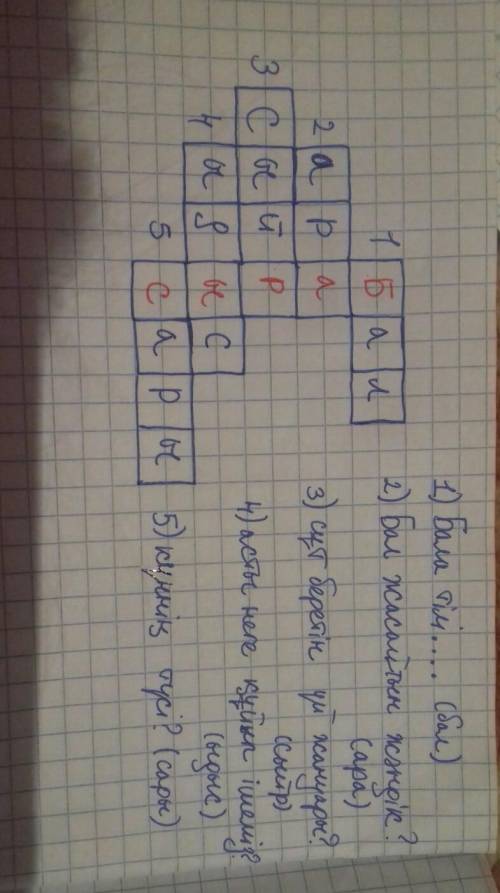 1 Бал
2 ара
3 Сиыр
4 ыдыс
5 сары
1) Бала тілі..... (бал)
2) Бал жасайтын жәндік?
(ара)
3) сүт беретін үй жануары?
(сиыр)
4) асты неге құйып ішеміз?
(ыдыс)
5) күннің түсі? (сары)